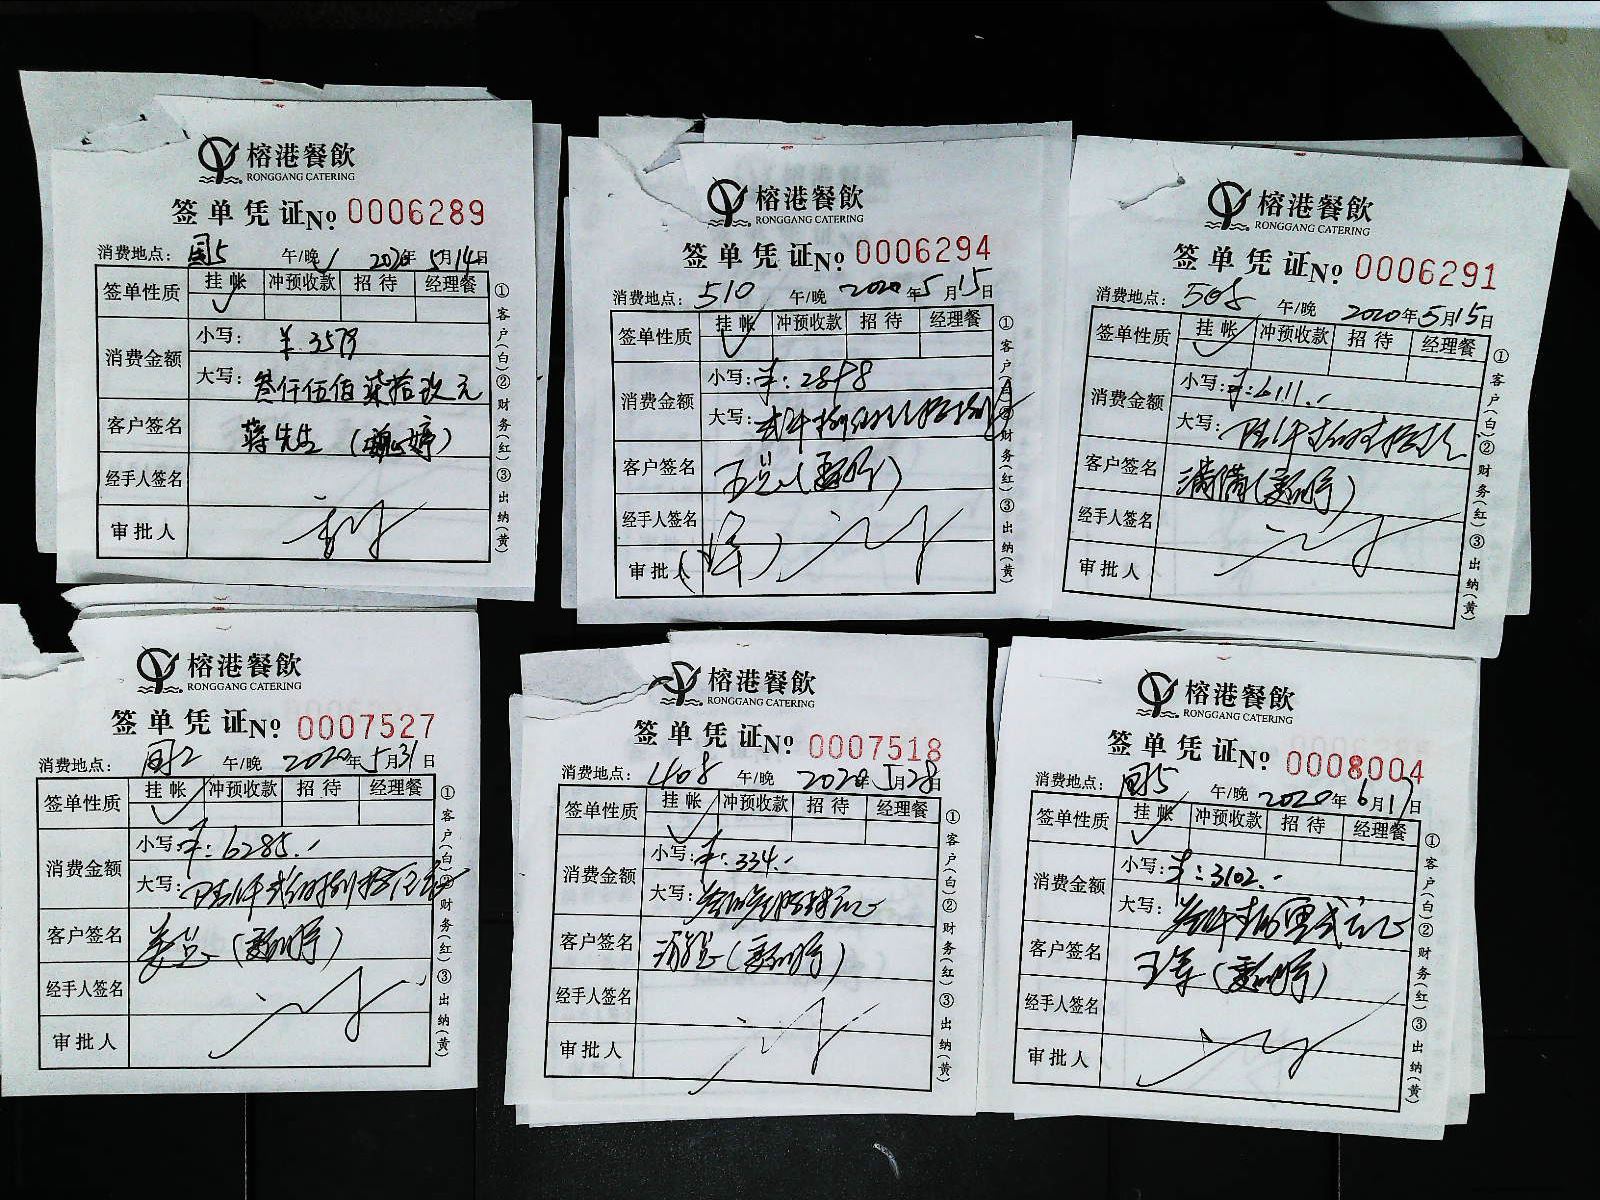 榕港餐飲
RONGGANG CATERING
签单凭证No. 0006289
消费地点: 国5 午/晚 2020年5月14日
签单性质 挂帐 冲预收款 招待 经理餐
消费金额 小写: ¥3579
大写: 叁仟伍佰柒拾玖元
客户签名 蒋先生
经手人签名
审批人
①客户(白)②财务(红)③出纳(黄)
榕港餐飲
RONGGANG CATERING
签单凭证No. 0006294
消费地点: 510 午/晚 2020年5月15日
签单性质 挂帐 冲预收款 招待 经理餐
消费金额 小写: ¥:2878
大写:
客户签名 王总
经手人签名
审批人
①客户(白)②财务(红)③出纳(黄)
榕港餐飲
RONGGANG CATERING
签单凭证No. 0006291
消费地点: 508 午/晚 2020年5月15日
签单性质 挂帐 冲预收款 招待 经理餐
消费金额 小写: ¥:6111.-
大写: 陆仟壹佰壹拾壹元
客户签名 满满
经手人签名
审批人
①客户(白)②财务(红)③出纳(黄)
榕港餐飲
RONGGANG CATERING
签单凭证No. 0007527
消费地点: 国2 午/晚 2020年5月31日
签单性质 挂帐 冲预收款 招待 经理餐
消费金额 小写: ¥:6285.-
大写: 陆仟贰佰捌拾伍元
客户签名 姜总
经手人签名
审批人
①客户(白)②财务(红)③出纳(黄)
榕港餐飲
RONGGANG CATERING
签单凭证No. 0007518
消费地点: 408 午/晚 2020年5月28日
签单性质 挂帐 冲预收款 招待 经理餐
消费金额 小写: ¥:334.-
大写: 叁佰叁拾肆元正
客户签名
经手人签名
审批人
①客户(白)②财务(红)③出纳(黄)
榕港餐飲
RONGGANG CATERING
签单凭证No. 0008004
消费地点: 国5 午/晚 2020年6月17日
签单性质 挂帐 冲预收款 招待 经理餐
消费金额 小写: ¥:3102.-
大写: 叁仟壹佰零贰元正
客户签名 王军
经手人签名
审批人
①客户(白)②财务(红)③出纳(黄)